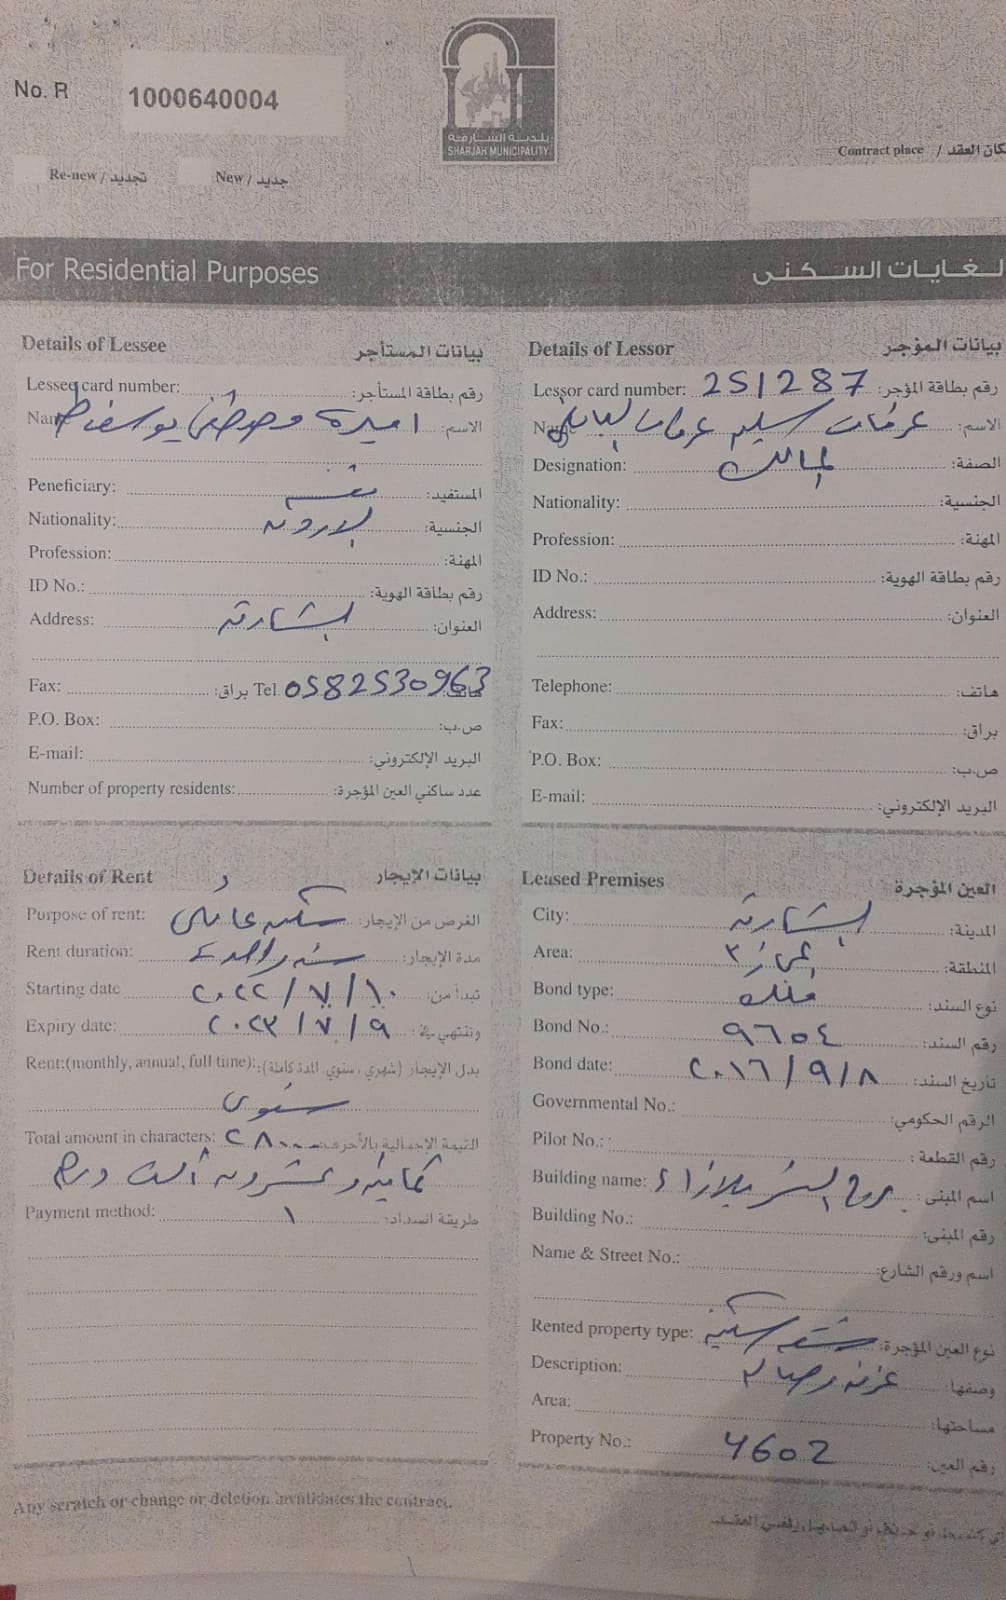 No. R 1000640004
بلدية الشارقة
SHARJAH MUNICIPALITY
Contract place / مكان العقد
Re-new / تجديد New / جديد
For Residential Purposes لغايات السكنى
Details of Lessee بيانات المستأجر
Lessee card number: رقم بطاقة المستأجر:
Name اميرة مصطفى يوسف الاسم:
Peneficiary: المستفيد:
Nationality: الاردن الجنسية:
Profession: المهنة:
ID No.: رقم بطاقة الهوية:
Address: الشارقة العنوان:
Fax: براق: Tel 0582530963 هاتف:
P.O. Box: ص.ب:
E-mail: البريد الإلكتروني:
Number of property residents: عدد ساكني العين المؤجرة:
Details of Lessor بيانات المؤجر
Lessor card number: 251287 رقم بطاقة المؤجر:
Name عرفات سليم عرفات الاسم:
Designation: المالك الصفة:
Nationality: الجنسية:
Profession: المهنة:
ID No.: رقم بطاقة الهوية:
Address: العنوان:
Telephone: هاتف:
Fax: براق:
P.O. Box: ص.ب:
E-mail: البريد الإلكتروني:
Details of Rent بيانات الإيجار
Purpose of rent: سكن عائلي الغرض من الإيجار:
Rent duration: سنة واحدة مدة الإيجار:
Starting date ٢٠٢٢/٧/١٠ تبدأ من:
Expiry date: ٢٠٢٣/٧/٩ وتنتهي في:
Rent:(monthly, annual, full time): بدل الإيجار (شهري، سنوي، المدة كاملة):
سنوي
Total amount in characters: ٢٨٠٠٠ القيمة الإجمالية بالأحرف:
ثمانية وعشرون ألف درهم
Payment method: ١ طريقة السداد:
Leased Premises العين المؤجرة
City: الشارقة المدينة:
Area: المجاز ٣ المنطقة:
Bond type: ملك نوع السند:
Bond No.: ٩٦٥٤ رقم السند:
Bond date: ٢٠١٦/٩/٨ تاريخ السند:
Governmental No.: الرقم الحكومي:
Pilot No.: رقم القطعة:
Building name: برج السنر بلازا ٤ اسم المبنى:
Building No.: رقم المبنى:
Name & Street No.: اسم ورقم الشارع:
Rented property type: شقة سكنية نوع العين المؤجرة:
Description: غرفة وصالة وصفها:
Area: مساحتها:
Property No.: 4602 رقم العين:
Any scratch or change or deletion invalidates the contract.
أي كشط أو حذف أو تعديل يلغي العقد